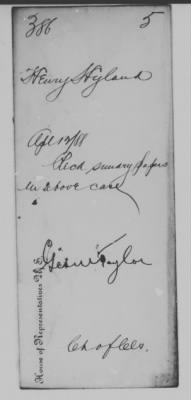 386 5
Henry Hyland
Apl 13/88
Recd sundry papers
in above case
Taylor
Ch of Cls.
House of Representatives U.S.